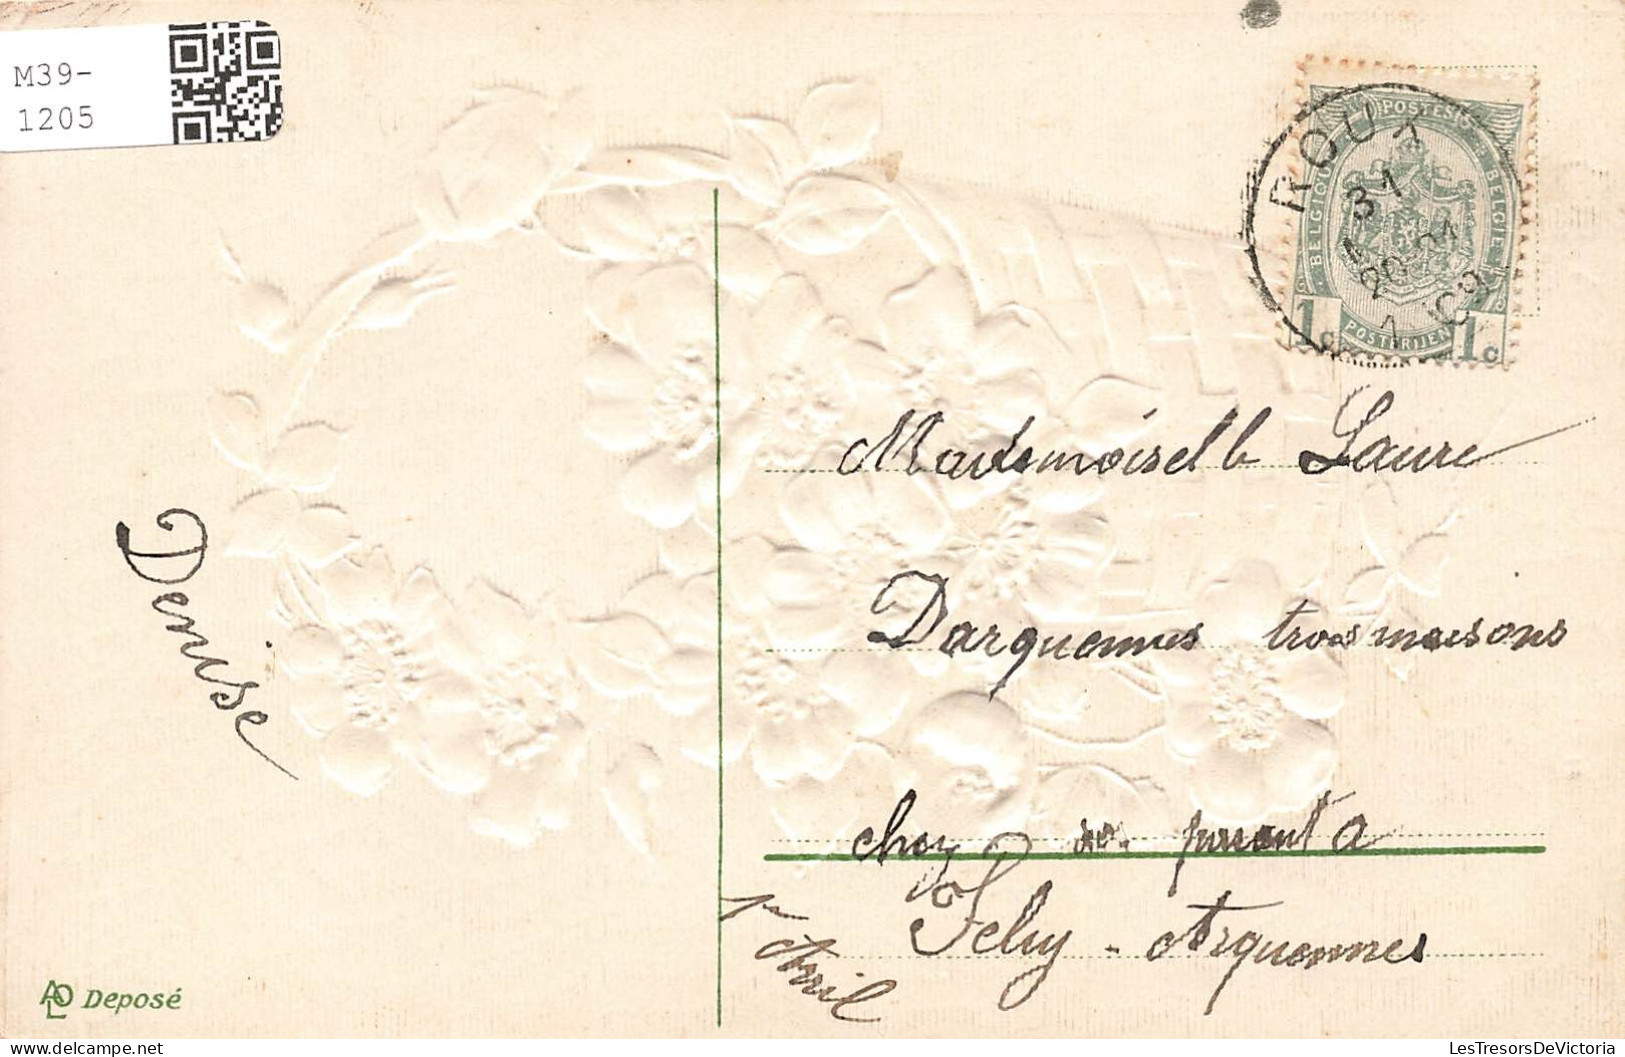 M39-
1205
POSTES
BELGIQUE
BELGIE
POSTERIJEN
1c
1c
ROUX
31
Mademoiselle Laure
Darquennes trois maisons
chez ses parent a
Feluy - Arquennes
1er Avril
Denise
Deposé
LesTresorsDeVictoria